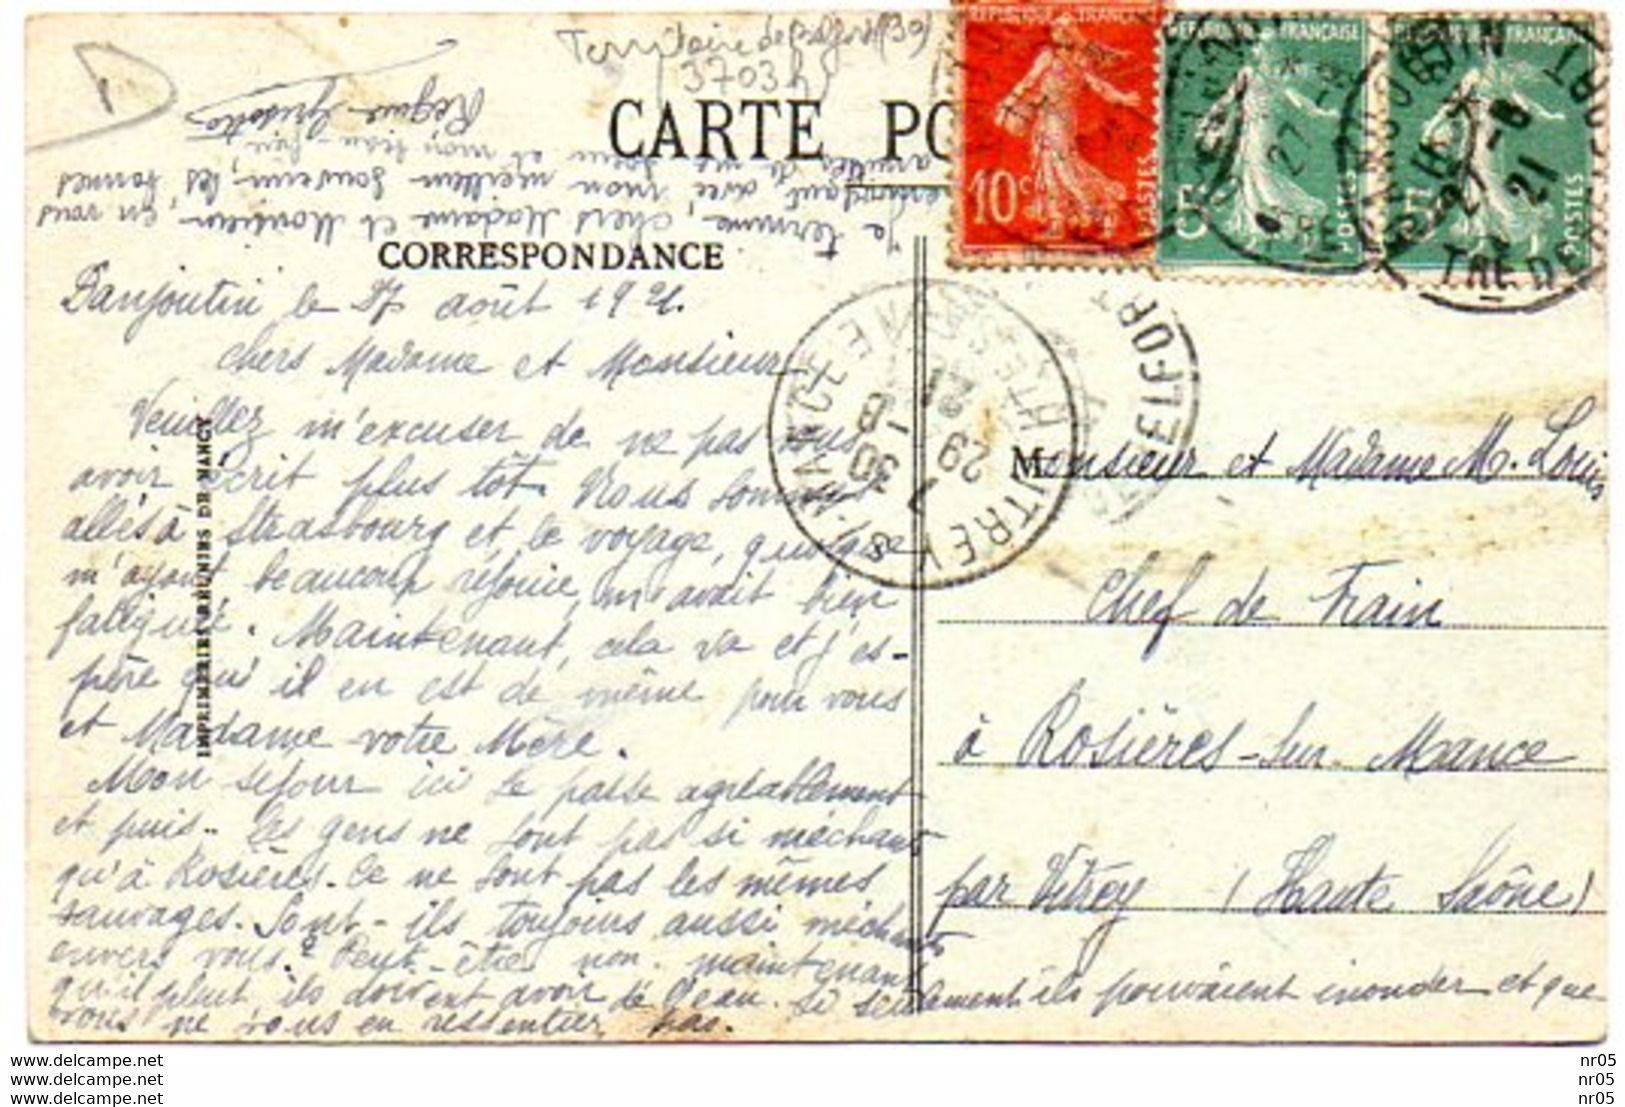 Territoire de Belfort (30)
3703 h
CARTE PO
CORRESPONDANCE
REPUBLIQUE FRANÇAISE
10c
POSTES
REPUBLIQUE FRANÇAISE
5c
POSTES
FRANÇAISE
5c
POSTES
27 -8
21
TRE DE BELFORT
Danjoutin le 27 août 1921.
Chers Madame et Monsieur,
Veuillez m'excuser de ne pas vous
avoir écrit plus tôt. Nous sommes
allés à Strasbourg et le voyage, quoique
m'ayant beaucoup réjouie, m'avait bien
fatiguée. Maintenant, cela va et j'es-
père qu'il en est de même pour vous
et Madame votre Mère.
Mon séjour ici se passe agréablement
et puis.. les gens ne sont pas si méchants
qu'à Rosières. Ce ne sont pas les mêmes
sauvages. Sont-ils toujours aussi méchants
envers vous? Peut-être non. maintenant
qu'il pleut, ils doivent avoir de l'eau. Si seulement ils pouvaient inonder et que
vous ne vous en ressentiez pas.
Je termine, chers Madame et Monsieur en vous
demandant avec mon meilleur souvenir, les bonnes
amitiés de ma sœur et mon beau-frère
IMPRIMERIES RÉUNIES DE NANCY
VITREY-S-MANCE
HTE SAONE
7 30
29 -8
21
BELFORT
M
Monsieur et Madame M. Louis
Chef de Train
à Rosières-sur-Mance
par Vitrey (Haute Saône)
www.delcampe.net
www.delcampe.net
www.delcampe.net
nr05
nr05
nr05